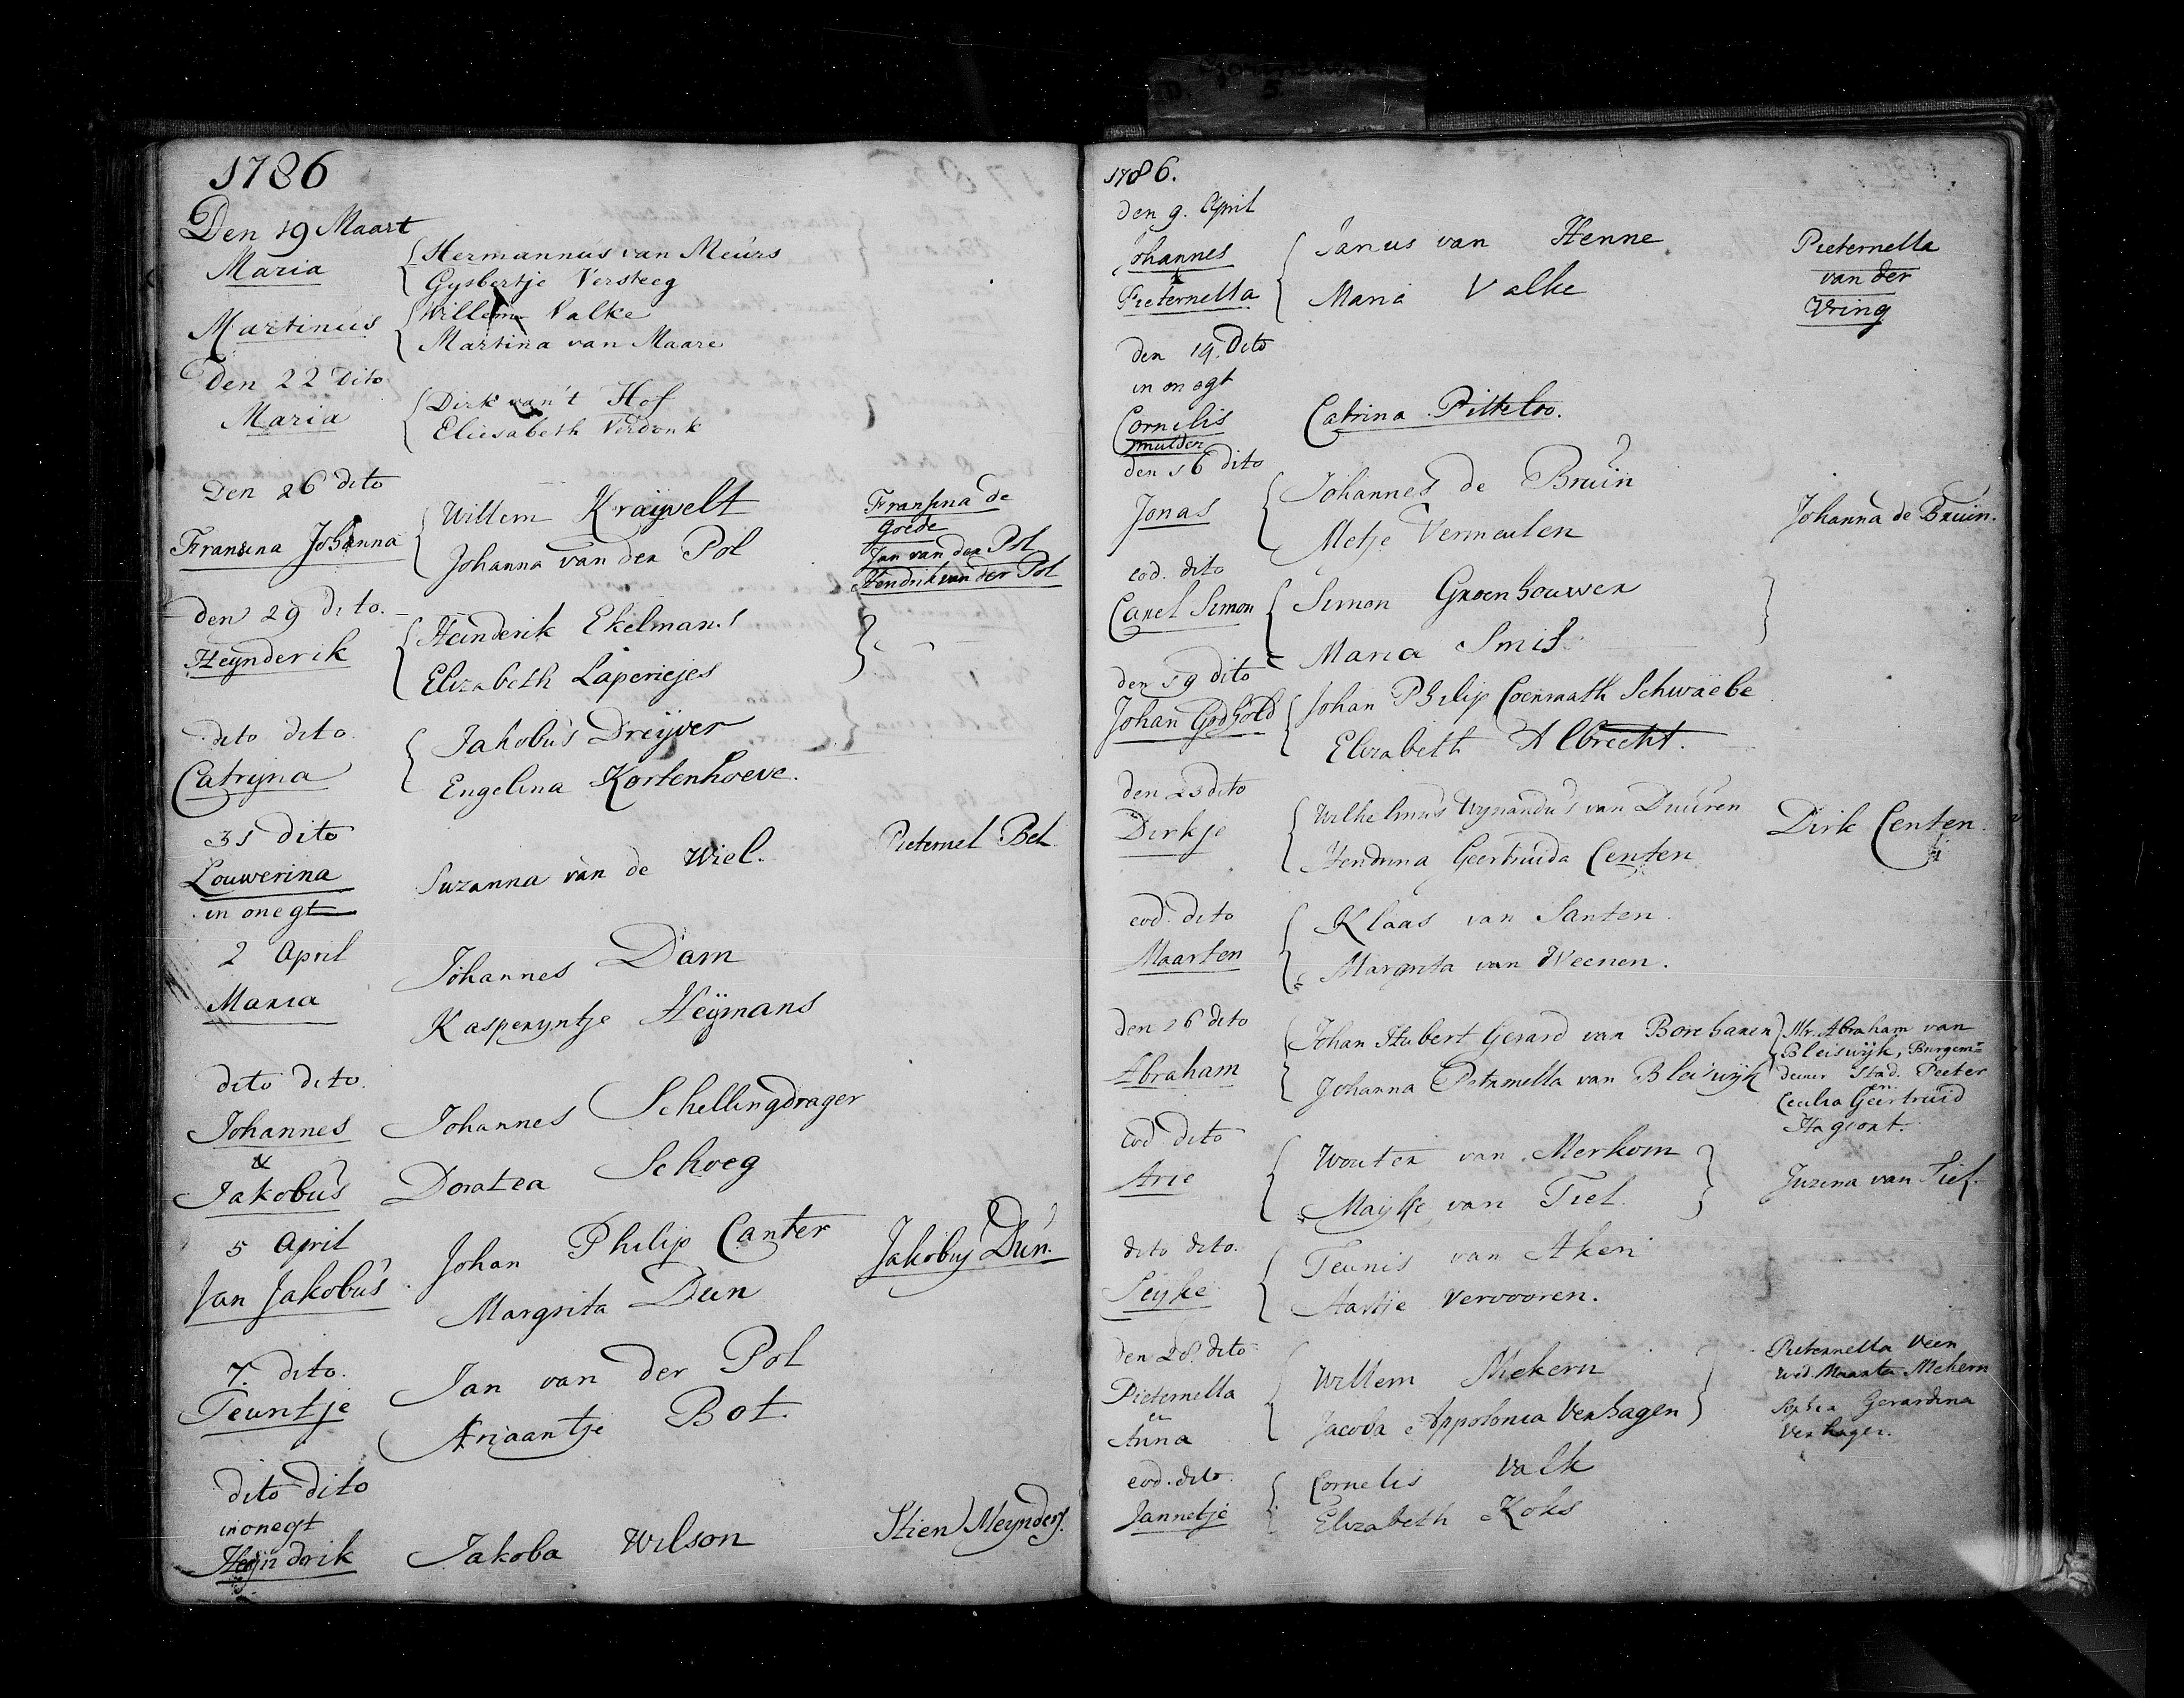 1786
Den 19 Maart
Maria
Hermannus van Meurs
Gysbertje Versteeg
Martinus
Willem Valke
Martina van Maare
Den 22 dito
Maria
Dirk van't Hof
Eliesabeth Verdonk
Den 26 dito
Fransina Johanna
Willem Kraijvelt
Johanna van der Pol
Fransina de
Goede
Jan van der Pol
Hendrik van der Pol
den 29 dito.
Heynderik
Heinderik Ekelmans
Elizabeth Laperiejes
dito dito
Catryna
Jakobus Dreijver
Engelina Kortenhoeve.
31 dito
Louwerina
in onegt
Suzanna van de Wiel.
Pieternel Bel
2 April
Maria
Johannes Dam
Kasperyntje Heijmans
dito dito
Johannes
&
Jakobus
Johannes Schellingdrager
Doratea Schoeg
5 April
Jan Jakobus
Johan Philip Canter
Margrita Dun
Jakobus Dun.
7. dito.
Teuntje
Jan van der Pol
Ariaantje Bot.
dito dito
in onegt
Heijndrik
Jakoba Wilson
Stien Meynders.
1786.
den 9. April
Johannes
&
Pieternella
Janus van Henne
Maria Valke
Pieternella
van der
Vring
den 14. dito
in onegt
Cornelis
Mulder
Catrina Pitteloo.
den 16 dito
Jonas
Johannes de Bruin
Metje Vermeulen
Johanna de Bruin.
eod. dito
Carel Simon
Simon Groenhouwer
Maria Smit
den 19 dito
Johan Godhold
Johan Philip Coenraath Schwaebe
Elizabeth Albrecht.
den 23 dito
Dirkje
Wilhelmus Wynandus van Duuren
Hendrina Geertruida Centen
Dirk Centen.
eod. dito
Maarten
Klaas van Santen.
Margrita van Weenen.
den 26 dito
Abraham
Johan Hubert Gerard van Boreharen
Johanna Petronella van Bleiswijk
Mr. Abraham van
Bleiswijk, Burgemr
deser Stad. Peeter
en
Cecilia Geertruid
eod dito
Arie
Wouter van Merkom
Maijke van Tiel.
van Tiel.
dito dito.
Seijke
Teunis van Aken
Aartje Vervooren.
den 28. dito
Pieternella
en
Anna
Willem Mekern
Jacoba Appolonia Verhagen
Pieternella Veen
Wed. Maarte Mekern
Sophia Gerardina
Verhagen.
eod. dito.
Jannetje
Cornelis Valk
Elizabeth Koks